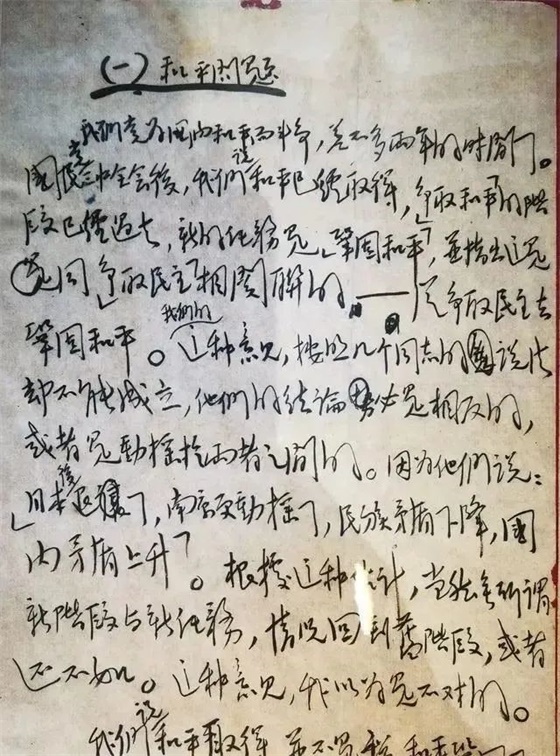 （一）和平问题
我们党为国内和平而斗争，差不多两年的时间了。
國民党三中全会後，我们说和平已經取得，「争取和平」的階
段已經过去，新的任務是「鞏固和平」，並指出这是
同「争取民主」相関联的——用争取民主去
鞏固和平。我们的这种意见，按照几个同志的说法
却不能成立，他们的结论必是相反的，
或者是動摇於两者之間的。因为他们说：
「日本後退了，南京更動摇了，民族矛盾下降，國
内矛盾上升」。根據这种估计，当然无所谓
新階段与新任務，情况回到舊階段，或者
还不如。这种意见，我以为是不对的。
我们说和平取得，並不是说和平